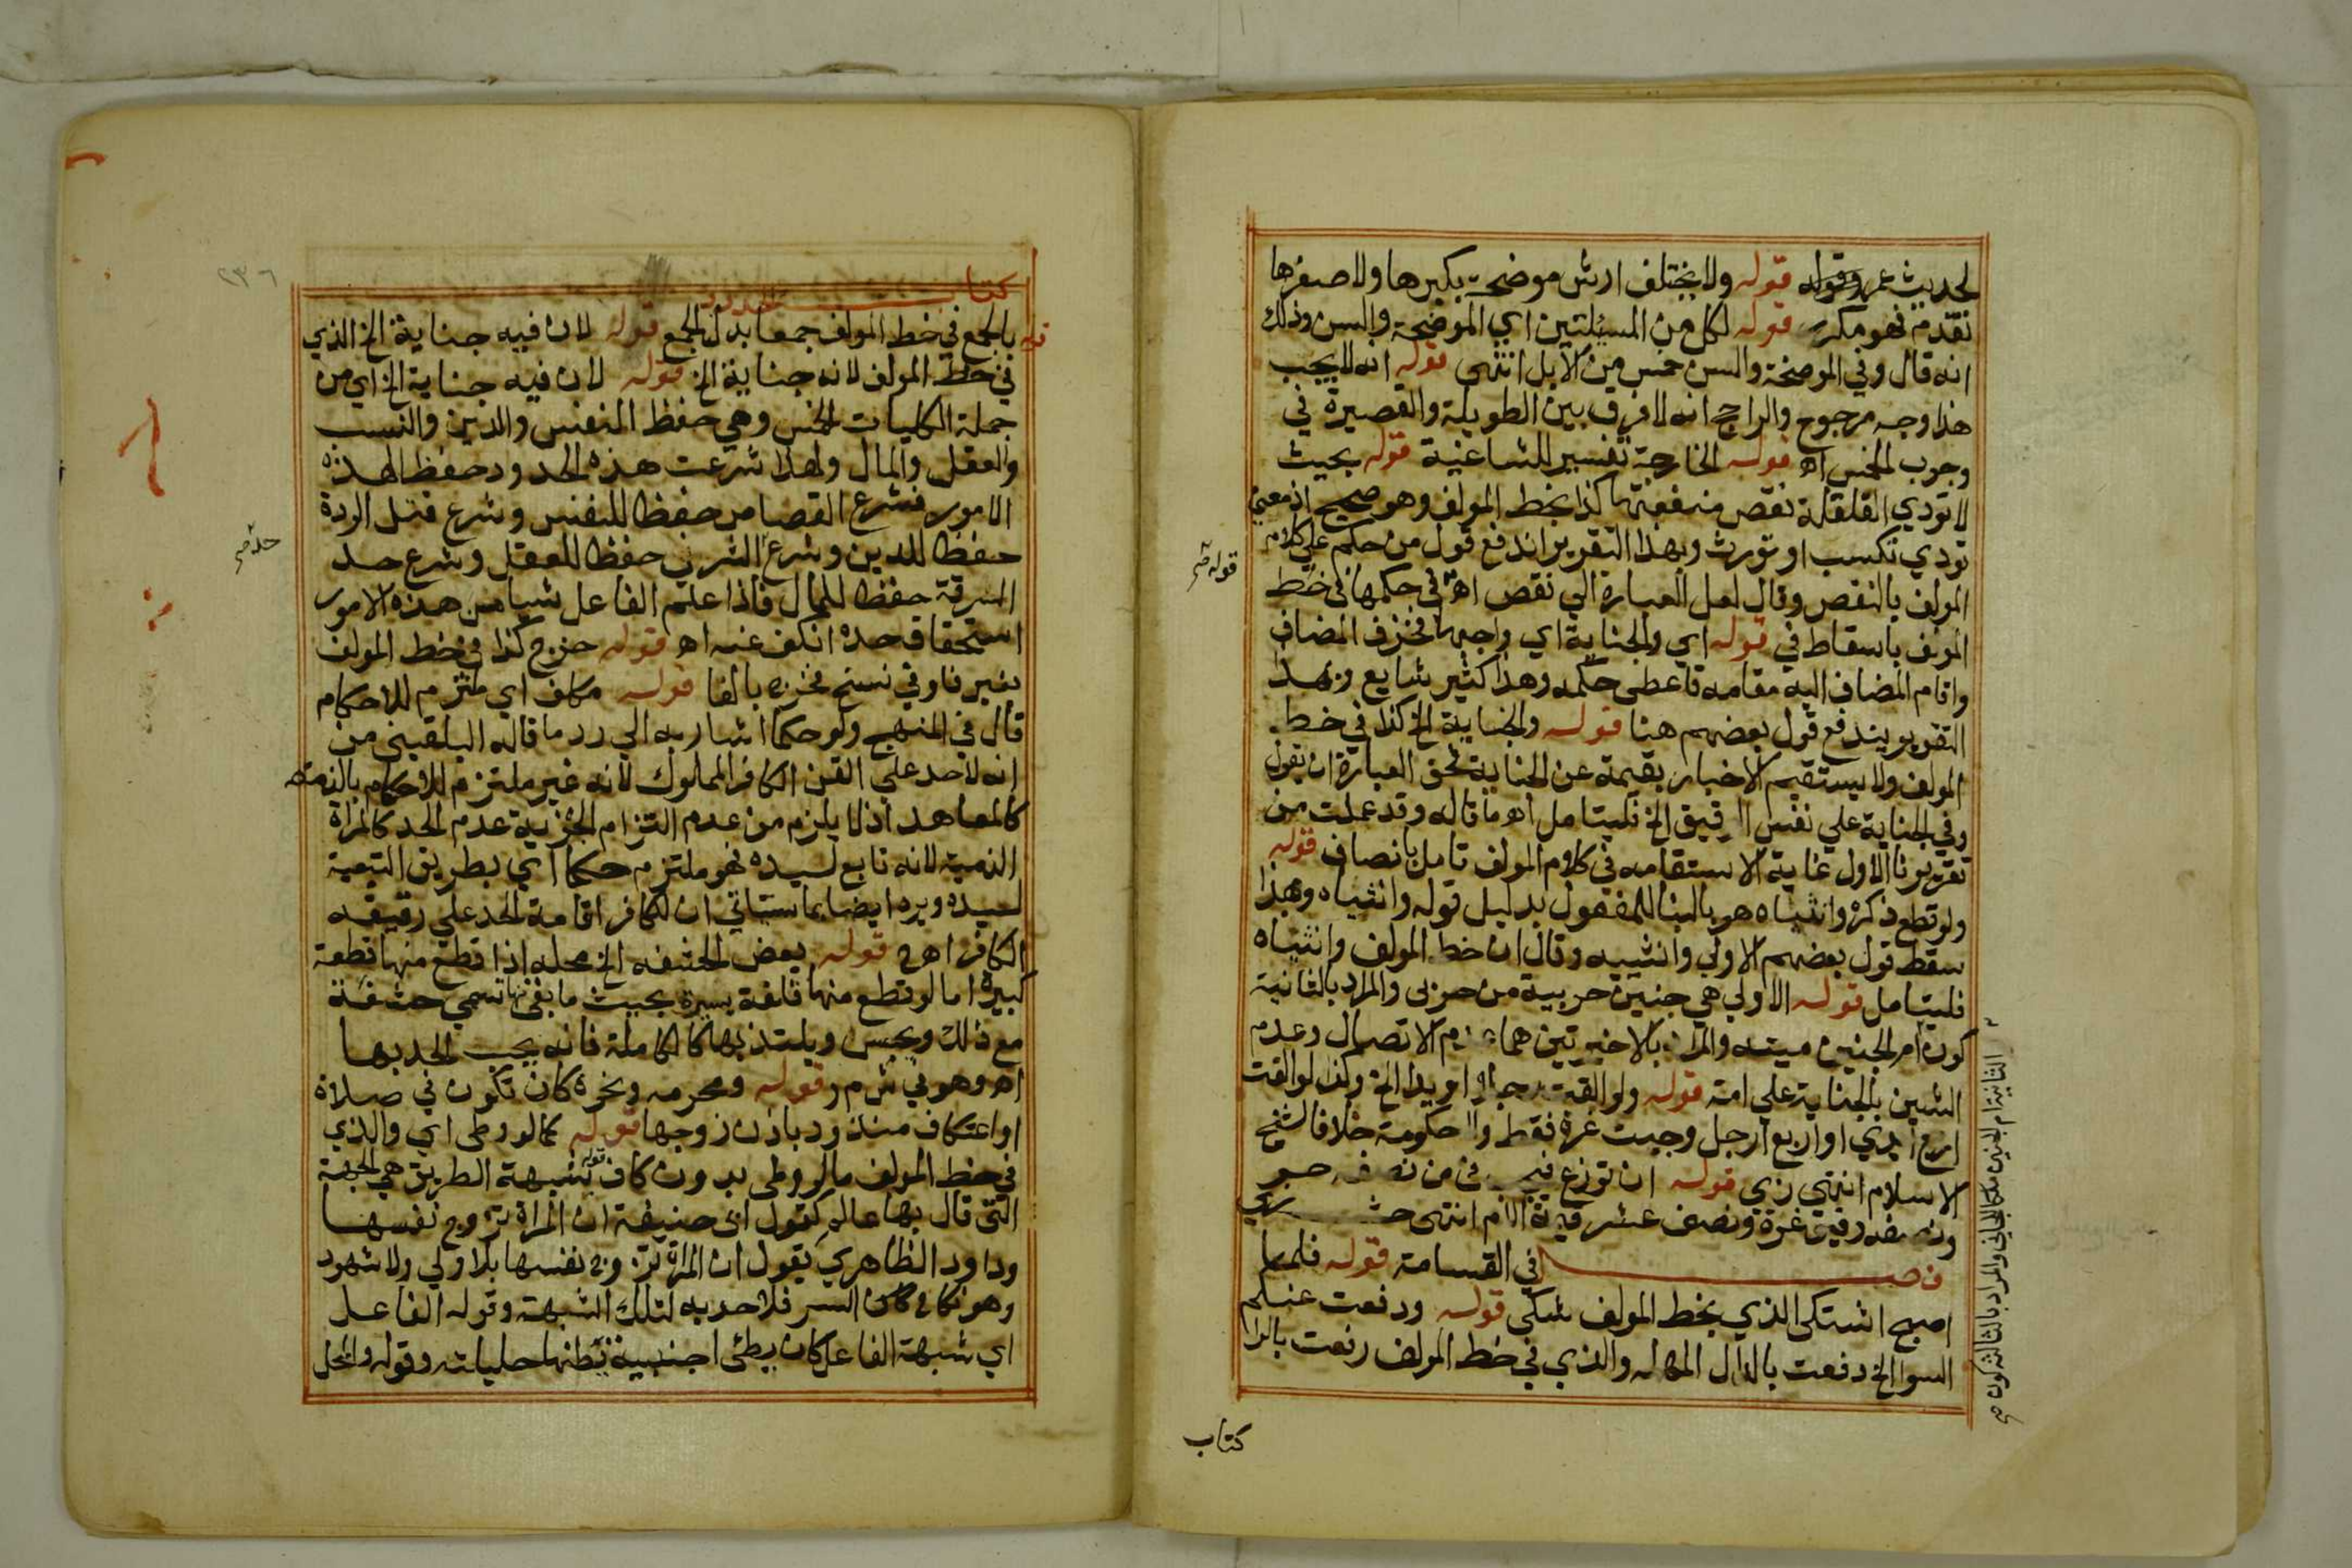 لحديث عمرو قوله ولا يختلف ارش موضحة بكبرها ولا صغرها
تقدم فهو مكرر قوله لكل من المسئلتين اي الموضحة والسن وذلك
انه قال وفي الموضحة والسن خمس من الابل انتهى قوله انه لا يجب
هذا وجه مرجوح والراجح انه لا فرق بين الطويلة والقصيرة في
وجوب الخمس اه قوله الخارجة تفسير للشاغية قوله بحيث
لا تودي القلقلة نقص منفعتها كذا بخط المولف وهو صحيح اذ معنى
تودي تكسب او تورث وبهذا التقرير اندفع قول من حكم على كلام
المولف بالنقص وقال لعل العبارة الي نقص اه في حكمها في خط
المولف باسقاط في قوله اي والجناية اي واجبها فحذف المضاف
واقام المضاف اليه مقامه فاعطى حكمه وهذا كثير شايع وبهذا
التقرير يندفع قول بعضهم هنا قوله والجناية الخ كذا في خط
المولف ولا يستقيم الاخبار بقيمة عن الجناية فحق العبارة ان يقول
وفي الجناية على نفس الرقيق الخ فليتامل اه ما قاله وقد عملت من
تقريرنا الاول غاية الاستقامه في كلام المولف تامل بانصاف قوله
ولو قطع ذكره وانثياه هو بالبنا للمفعول بدليل قوله وانثياه وبهذا
سقط قول بعضهم الاولى وانثييه وقال ان خط المولف وانثياه
فليتامل قوله الاولي هي جنين حربية من حربى والمراد بالثانية
كون ام الجنين ميته والمراد بالاخيرتين هما عدم الاتصال وعدم
الشين بالجناية على امة قوله ولو القت بدجبار او يدا الخ وكذا لو القت
اربع ايدي او اربع ارجل وجبت غرة فقط ولا حكومة خلافا لشيخ
الاسلام انتهي زي قوله ان توزع فيجب في من نصفه حر
ونصفه رقيق غرة ونصف عشر قيمة الام انتهى
فصل في القسامة قوله فلما
اصبح اشتكى الذي بخط المولف شكى قوله ودفعت عنكم
السوا الخ دفعت بالدال المهمله والذي في خط المولف رفعت بالرا
قوله صح
الثانية ام الجنين ملكا للجاني والمراد بالثالثة كون صح
كتاب
٢٣٦
كتاب الحدود
قوله بالجمع في خط المولف جمعا بدل بالجمع قوله لان فيه جناية الخ الذي
في خط المولف لانه جناية الخ قوله لان فيه جناية الخ اي من
جملة الكليات الخمس وهي حفظ النفس والدين والنسب
والعقل والمال ولهذا شرعت هذه الحدود حفظا لهذه
الامور فشرع القصاص حفظا للنفس وشرع قتل الردة
حفظا للدين وشرع الشرب حفظا للعقل وشرع حد
السرقة حفظا للمال فاذا علم الفاعل شيا من هذه الامور
استحقاق حده انكف عنه اه قوله خرج كذا في خط المولف
بغير فا وفي نسخ فخرج بالفا قوله مكلف اي ملتزم للاحكام
قال في المنهج ولو حكما اشار به الي رد ما قاله البلقيني من
انه لا حد على القن الكافر المملوك لانه غير ملتزم للاحكام بالذمة
كالمعاهد اذ لا يلزم من عدم التزام الجزية عدم الحد كالمراة
الذمية لانه تابع لسيده فهو ملتزم حكما اي بطريق التبعية
لسيده ويرد ايضا بما سياتي ان للكافر اقامة الحد على رقيقه
الكافر اه ح قوله بعض الحشفه الخ محله اذا قطع منها قطعة
كبيرة اما لو قطع منها فلقة يسيرة بحيث ما بقى منها تسمي حشفة
مع ذلك ويحس ويلتذ بها كالكاملة فانه يجب الحد بها
اه وهو في ش م ر قوله ومحرمه ونحره كان تكون في صلاة
او اعتكاف منذور باذن زوجها قوله كما لو وطى اي والذي
في خط المولف مالو وطى بدون كاف قوله شبهة الطريق هي الجهة
التي قال بها عالم كقول ابى حنيفة ان المراة تزوج نفسها
وداود الظاهري يقول ان المراة تزوج نفسها بلا ولي ولا شهود
وهو نكاح السر فلا حد به لتلك الشبهة وقوله الفاعل
اي شبهة الفاعل كان يطئ اجنبية يظنها حليلته وقوله والمحل
حد صح